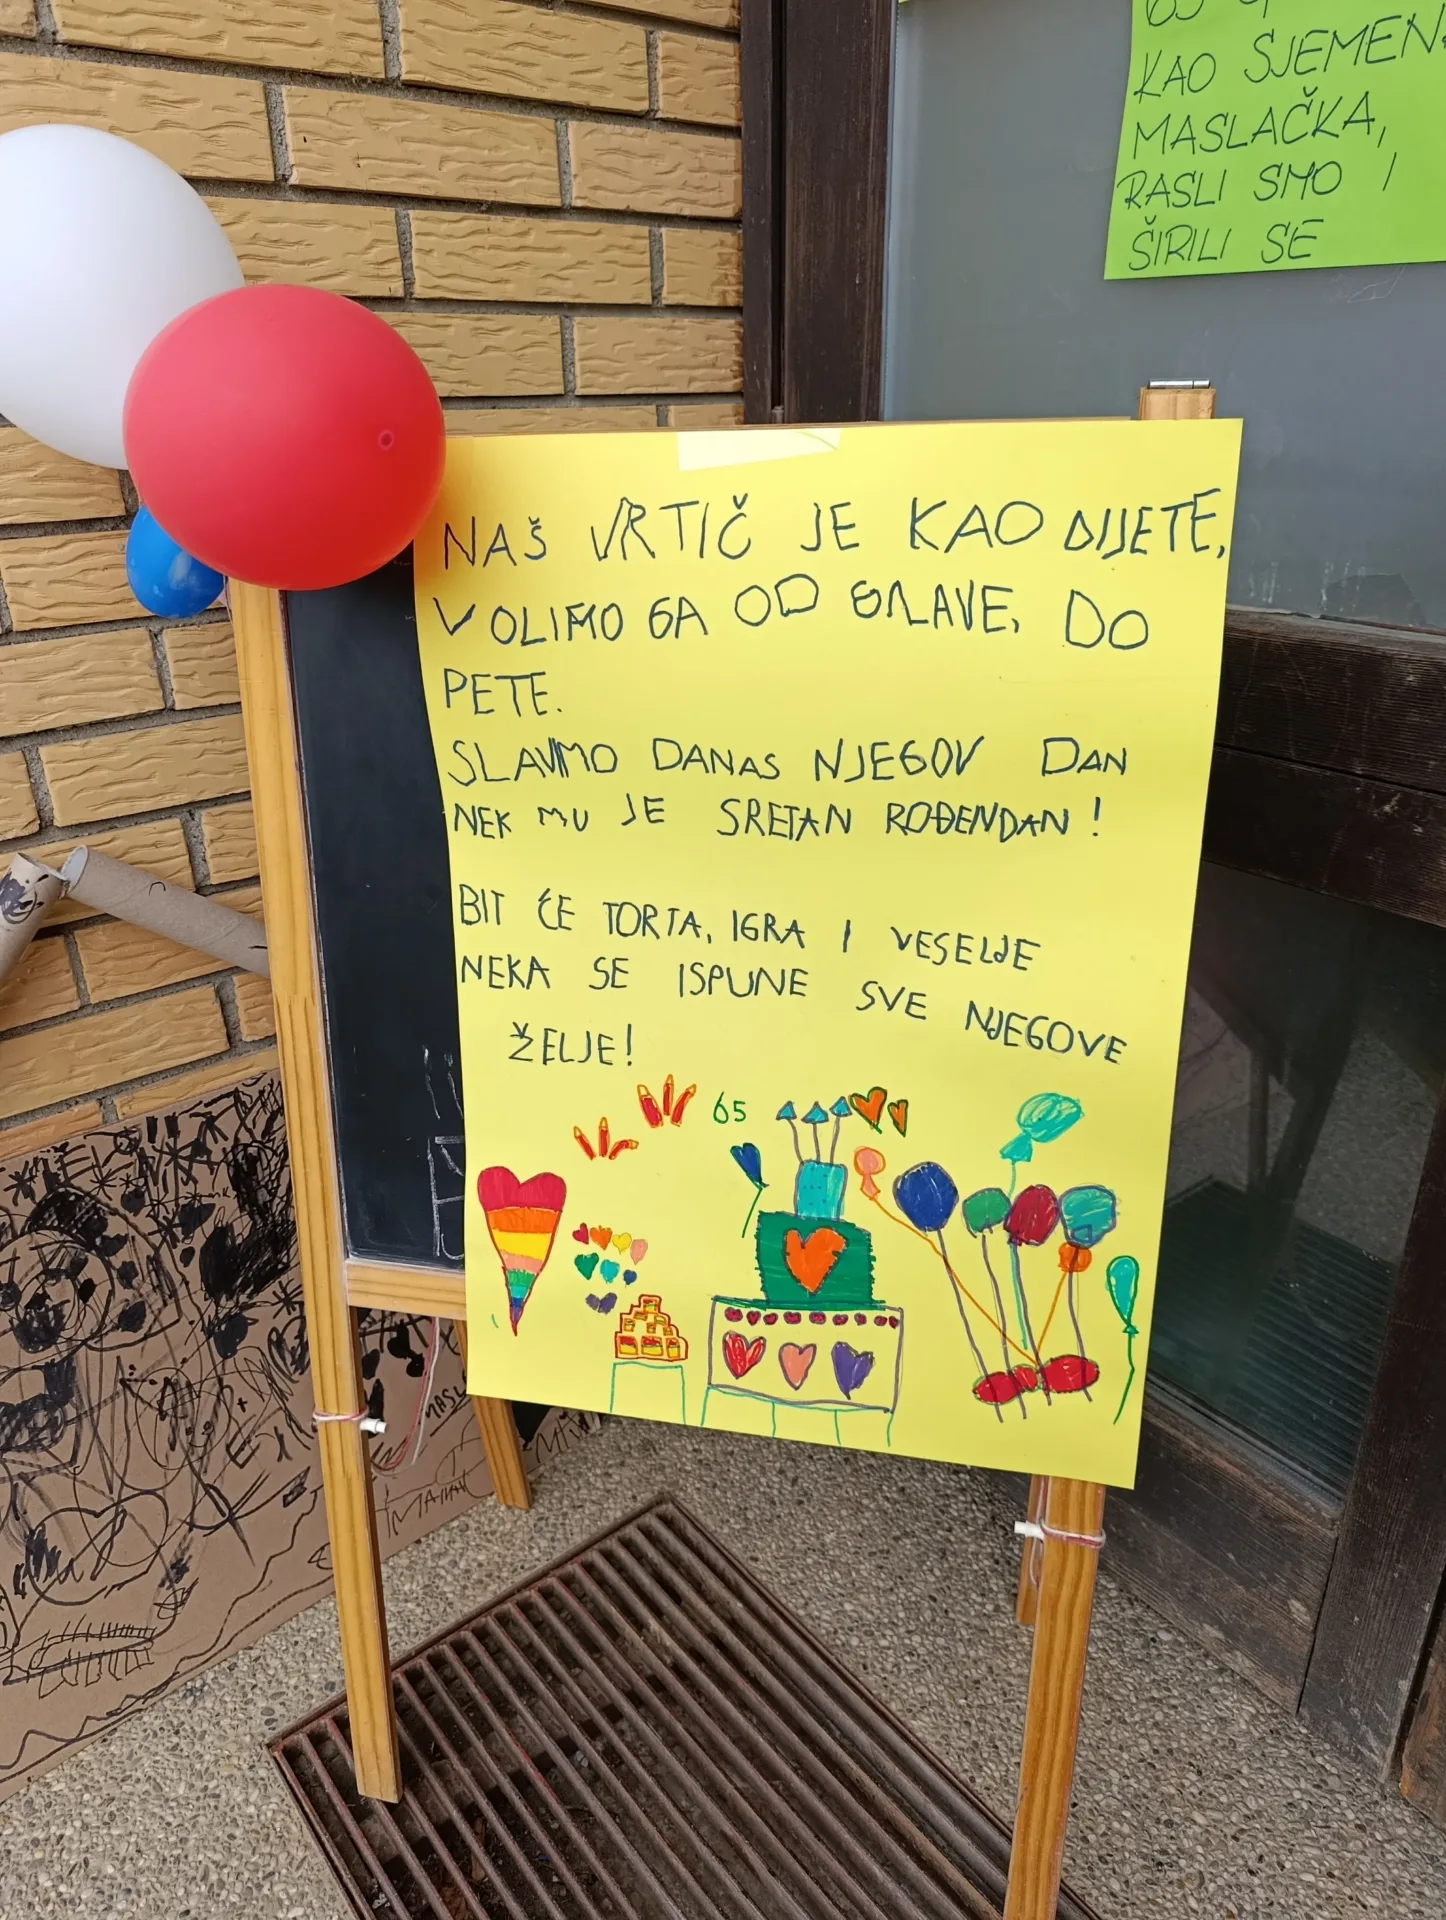 KAO SJEMEN
MASLAČKA,
RASLI SMO I
ŠIRILI SE
NAŠ VRTIČ JE KAO DIJETE,
VOLIMO GA OD GLAVE, DO
PETE.
SLAVIMO DANAS NJEGOV DAN
NEK MU JE SRETAN ROĐENDAN!
BIT ĆE TORTA, IGRA I VESELJE
NEKA SE ISPUNE SVE NJEGOVE
ŽELJE!
65